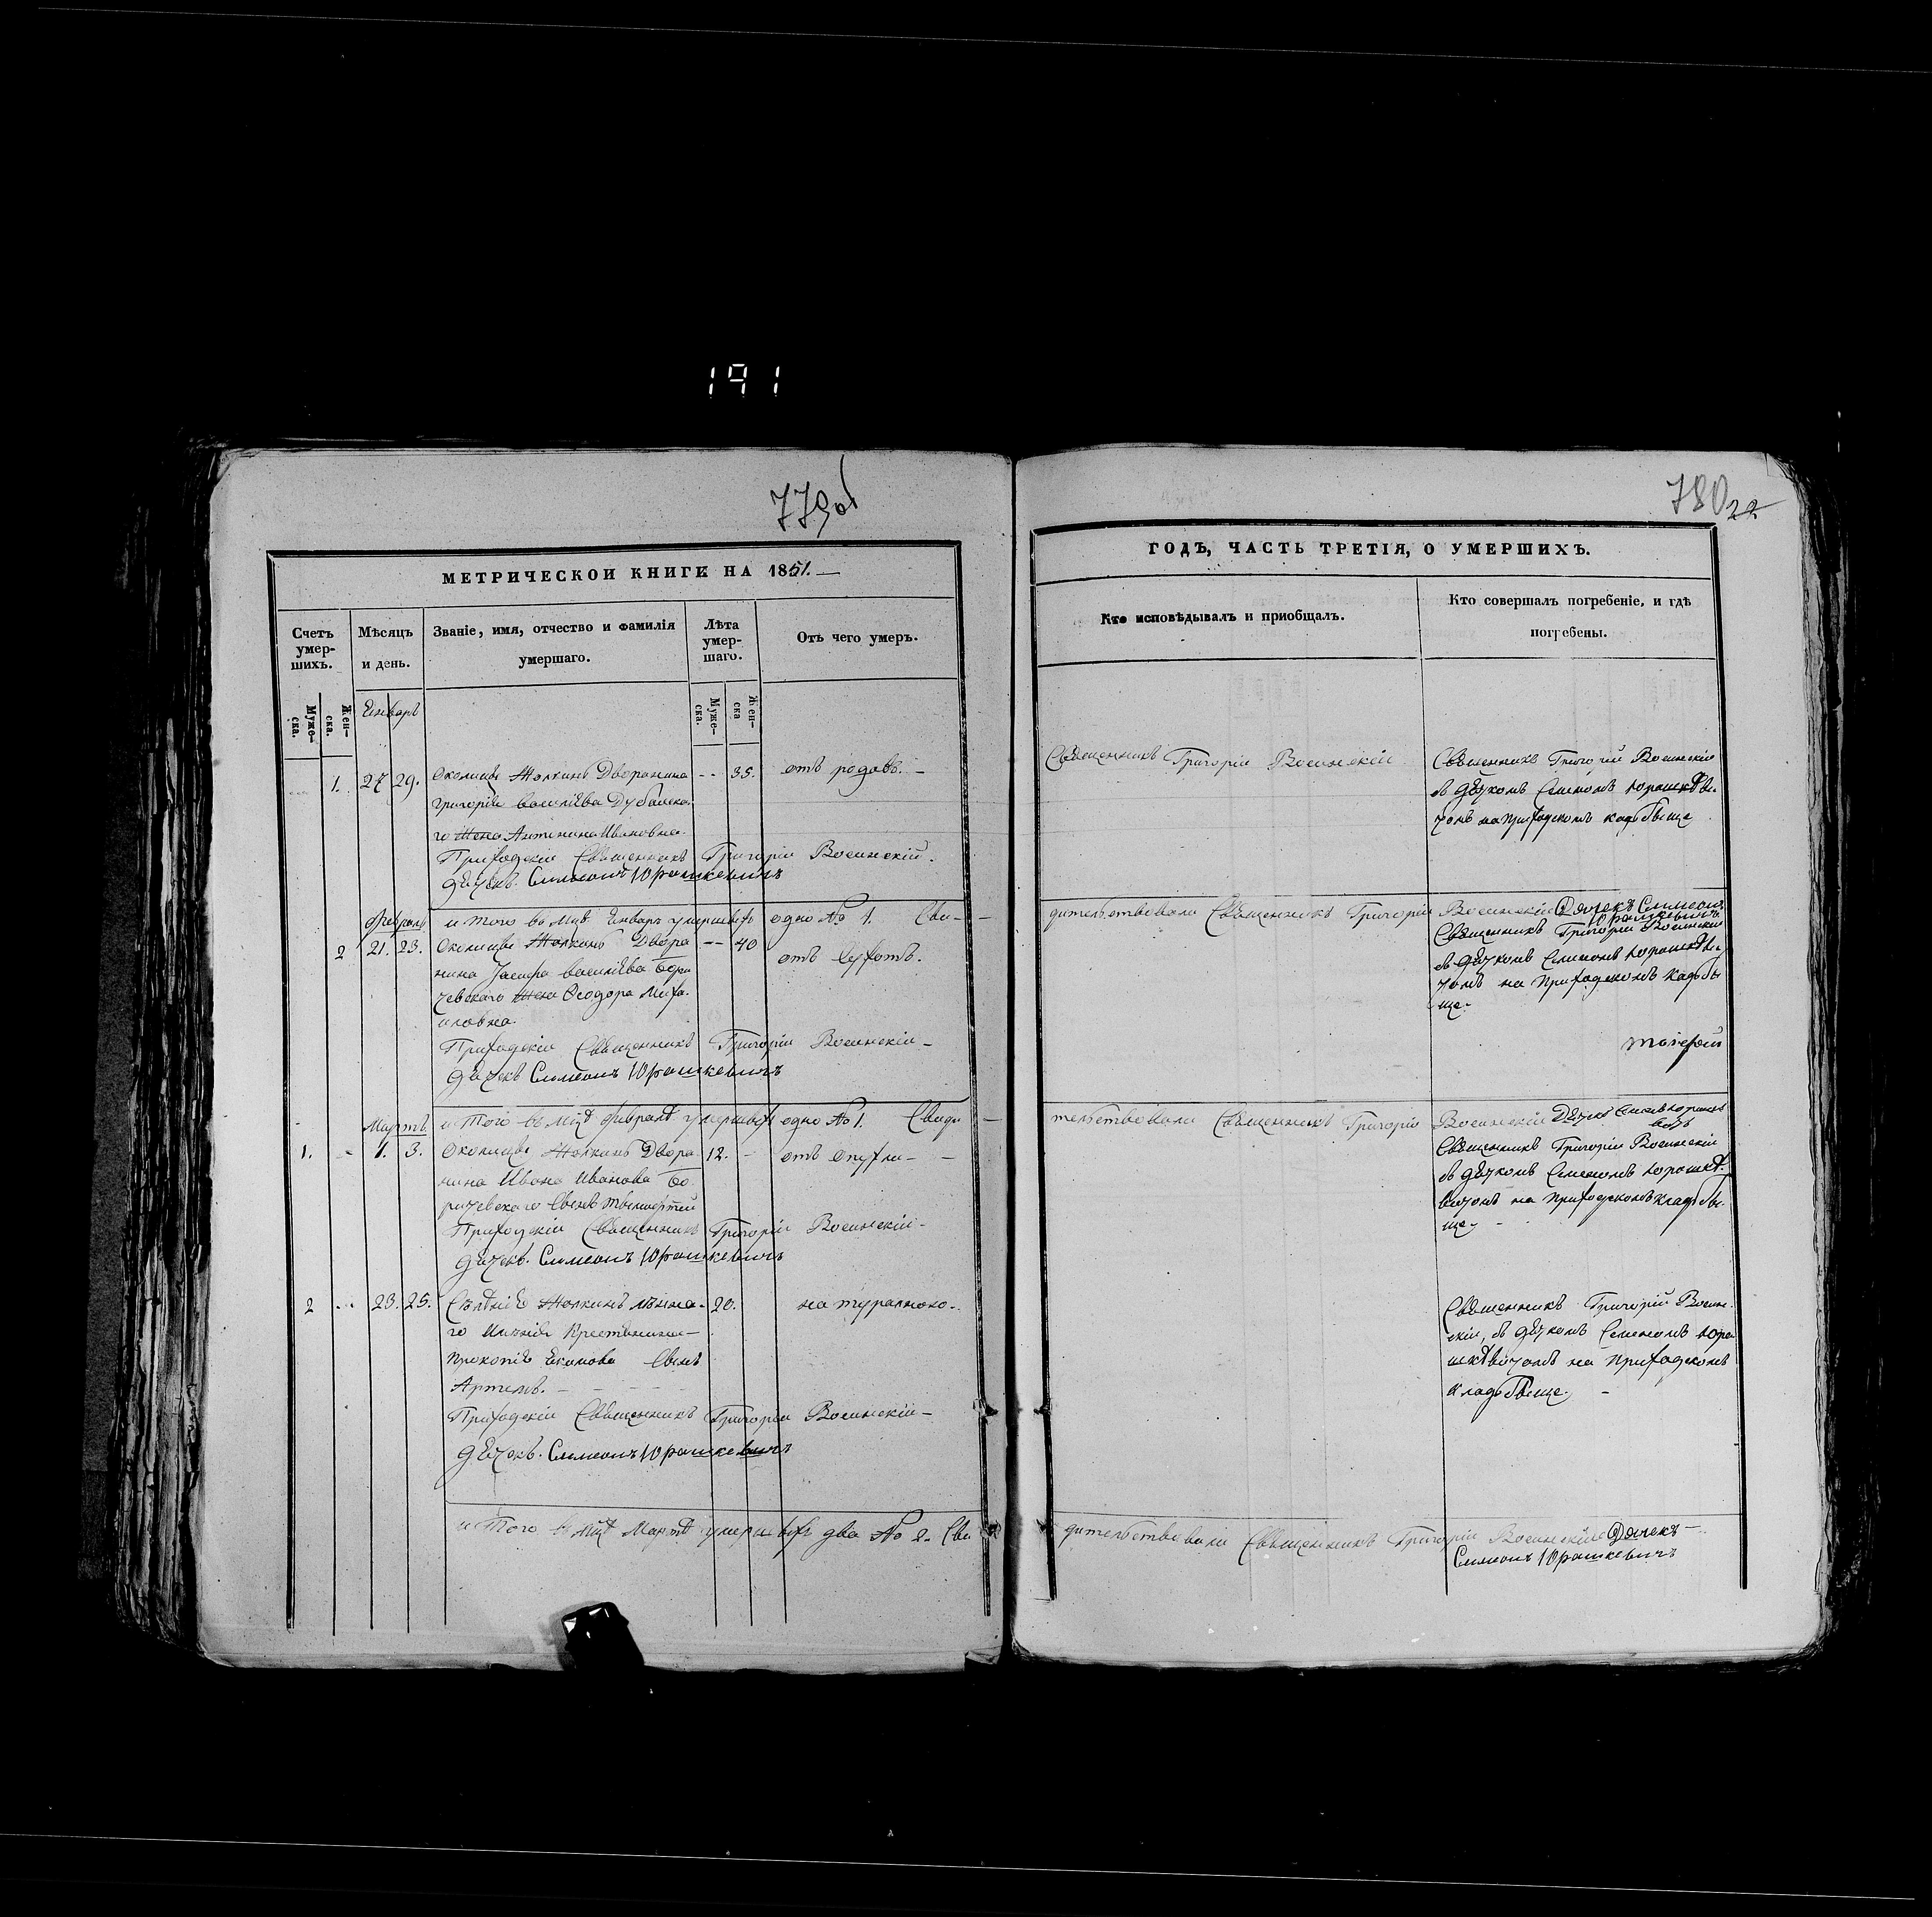 191
779об
МЕТРИЧЕСКОЙ КНИГИ НА 1851.
Счетъ умер-шихъ.
Мѣсяцъ и день.
Званіе, имя, отчество и фамилія умершаго.
Лѣта умер-шаго.
Отъ чего умеръ.
Муже-ска.
Жен-ска.
Муже-ска.
Жен-ска
Январь
1. 27 29. Околицы Жолкинь Дворянина -- 35. отъ родовъ. -
Григорія Васильева
го жена Антонина Ивановна
Приходскій Священникъ Григорій Восинскій.
Дьячекъ. Симеонъ Юрашкевичъ
Февраль
итого въ мцѣ Январѣ умершихъ одно № 1. Сви-
2 21. 23. Околицы Жолкинь Дворя -- 40 отъ сухотъ.
нина Іосифа Васильева Бори
чевскаго жена Ѳеодора Миха-
иловна
Приходскій Священникъ Григорій Восинскій -
Дьячекъ Симеонъ Юрашкевичъ
Мартъ
итого въ мцѣ Февралѣ умершихъ одно № 1. Свиде
1. - 1. 3. Околицы Жолкинь Дворя 12. - отъ опухли -
нина Ивана Иванова Бо
ричевскаго сынъ
Приходскій Священникъ Григорій Восинскій -
Дьячекъ. Симеонъ Юрашкевичъ
2 - 23. 25. Жолкинь 20. натурально.
го имѣнія крестьянина
Прокопія Екимова сынъ
Артемъ.
Приходскій Священникъ Григорій Восинскій -
Дьячекъ. Симеонъ Юрашкевичъ
итого въ мцѣ Мартѣ умершихъ два № 2. Сви
780
22
ГОДЪ, ЧАСТЬ ТРЕТІЯ, О УМЕРШИХЪ.
Кто исповѣдывалъ и приобщалъ.
Кто совершалъ погребеніе, и гдѣ погребены.
Священникъ Григорій Восинскій
Священникъ Григорій Восинскій
съ дьячкомъ Семеномъ Юрашкеви-
чомъ на приходскомъ кладбыще
дительствовали Священникъ Григорій Восинскій Дячекъ Симеонъ
Юрашкевичъ
Священникъ Григорій Восинскій
съ дьячкомъ Семеномъ Юрашкеви-
чомъ на приходскомъ кладбы
ще.
тельствовали Священникъ Григорій Восинскій Дьячекъ
Священникъ Григорій Восинскій
съ дьячкомъ Семеномъ Юрашке-
вичомъ на приходскомъ кладбы
ще
Священникъ Григорій Восин-
скій, съ дьячкомъ Семеномъ Юра
шкевичомъ на приходскомъ
кладбыще.
дительствовали Священникъ Григорій Восинскій Дячекъ -
Симеонъ Юрашкевичъ